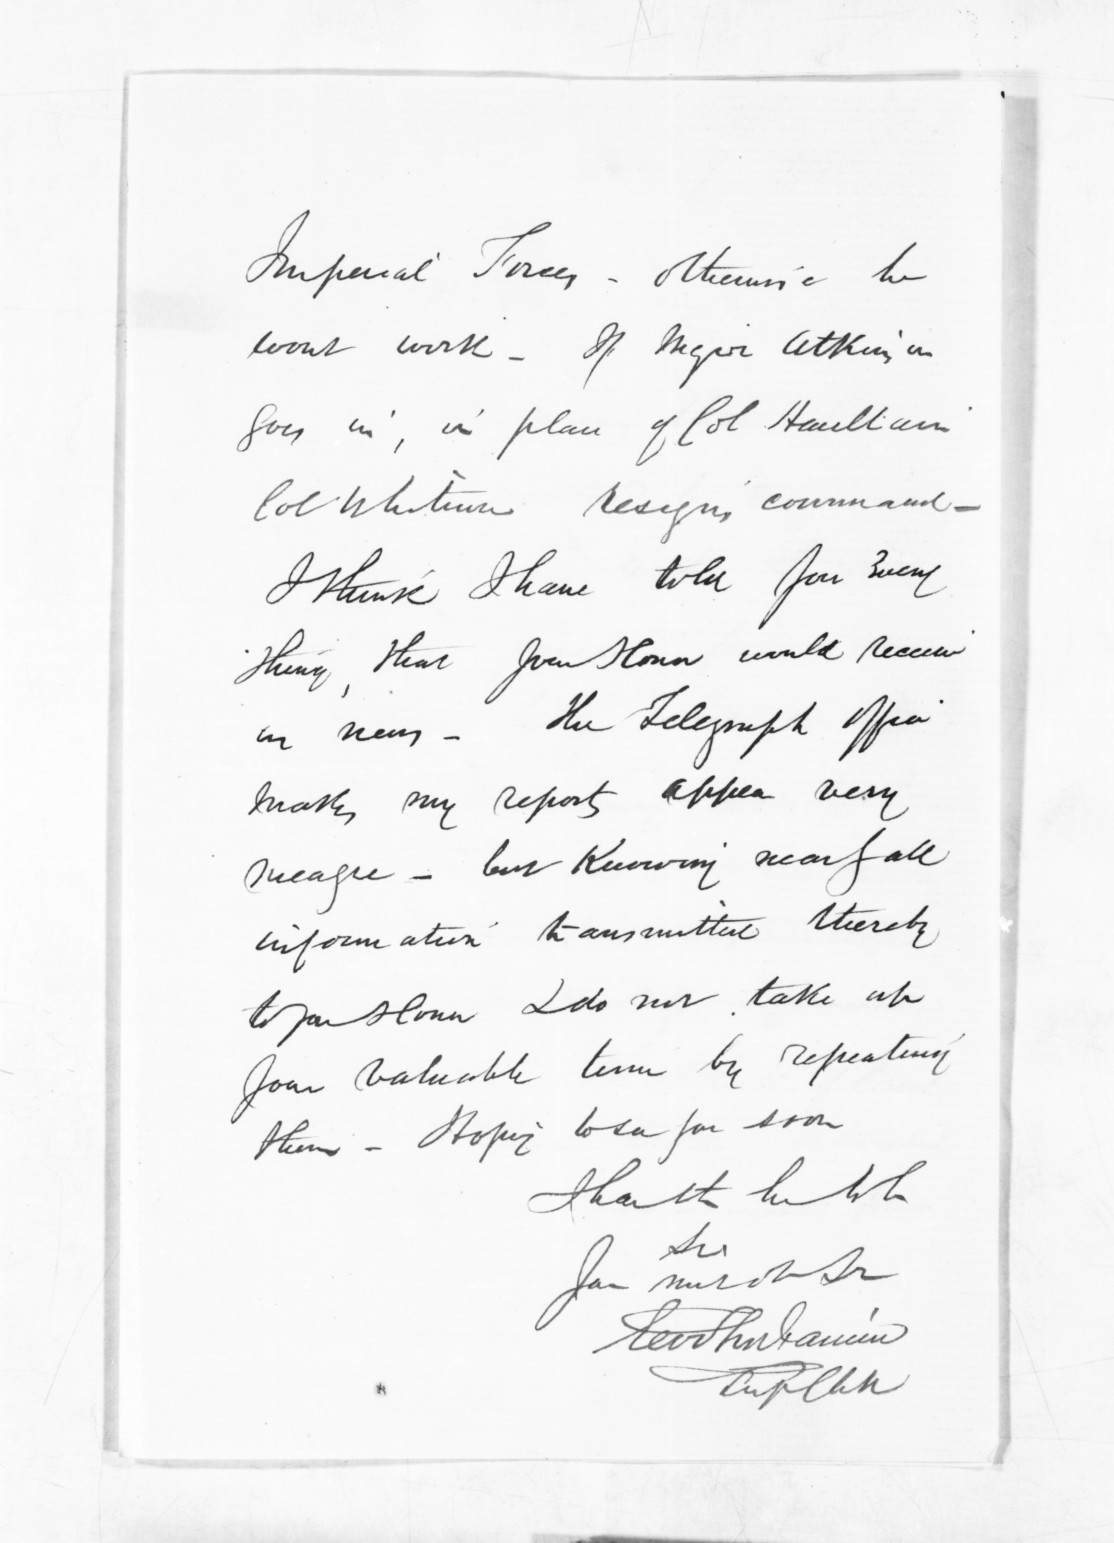 Imperial Forces - otherwise he
wont work - If Major Atkinson
goes in, in place of Col Haultain
Col Whitmore resigns command -
I think I have told you Every
thing, that your Honor would receive
as news - The Telegraph Office
makes my reports appear very
meagre - but Knowing nearly all
information transmitted thereby
to your Honor I do not take up
your valuable time by repeating
them - Hoping to see you soon
I have the honor to be
Sir
Your most obt Sr